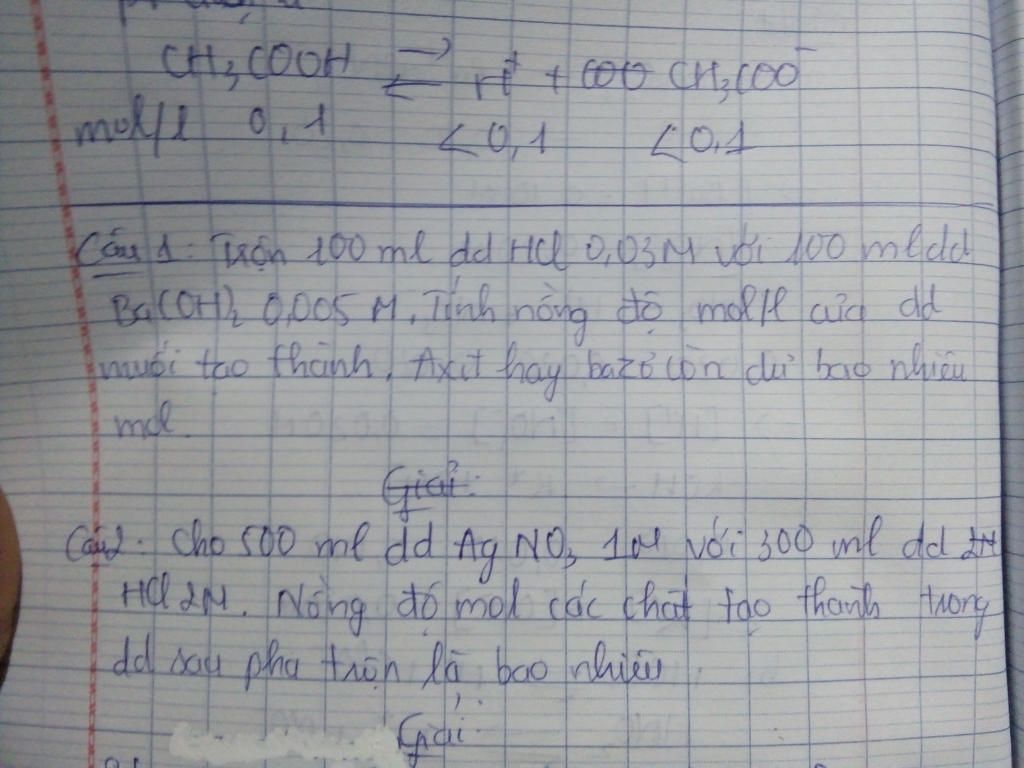 CH₃COOH ⇌ H⁺ + CH₃COO⁻
mol/l 0,1 <0,1 <0,1
Câu 1: Trộn 100 ml dd HCl 0,03M với 100 ml dd
Ba(OH)₂ 0,005 M. Tính nồng độ mol/l của dd
muối tạo thành. Axit hay bazơ còn dư bao nhiêu
mol.
Giải:
Câu 2: Cho 500 ml dd AgNO₃ 1M với 300 ml dd 2M
HCl 2M. Nồng độ mol các chất tạo thành trong
dd sau pha trộn là bao nhiêu.
Giải